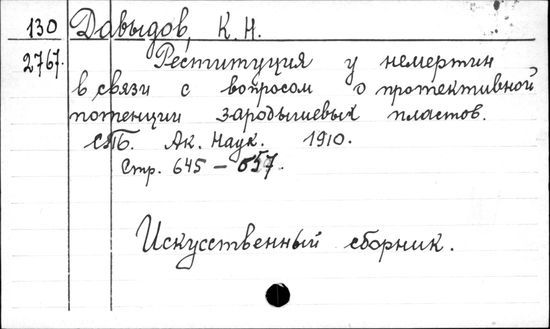 130 Давыдов, К. Н.
2767. Реституция у немертин
в связи с вопросом о протективной
потенции зародышевых пластов.
СПБ. Ак. Наук. 1910.
Стр. 645 – 657.
Искусственный сборник.